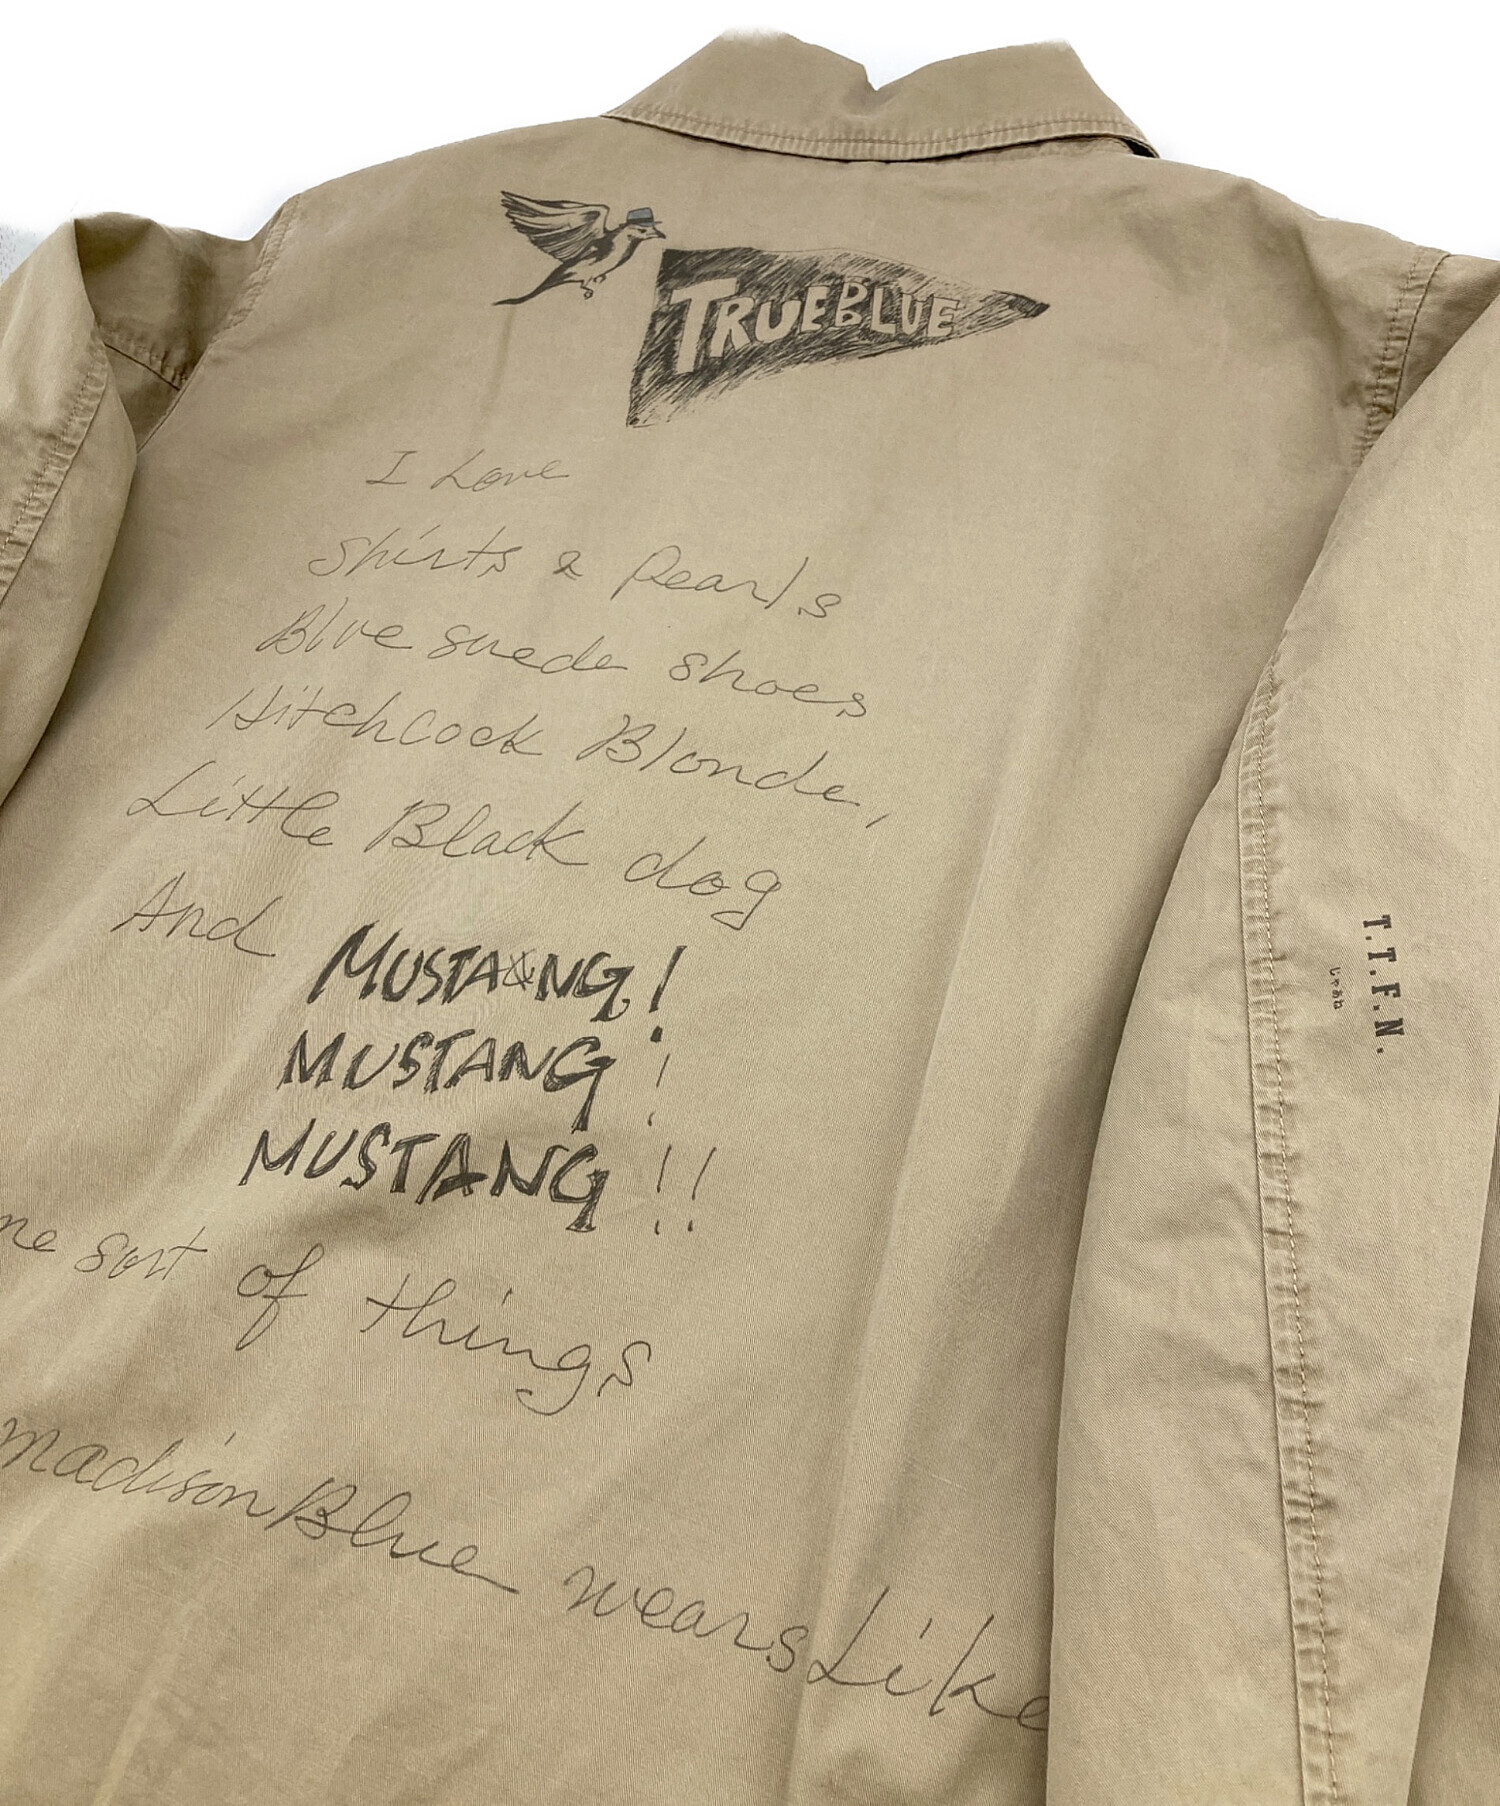 TRUEBLUE
I Love
shirts & Pearls
Blue suede shoes
Hitchcock Blonde,
Little Black dog
And MUSTANG!
MUSTANG!
MUSTANG!!
sort of things
madisonBlue wears Like
T.T.F.N.
じゃあね